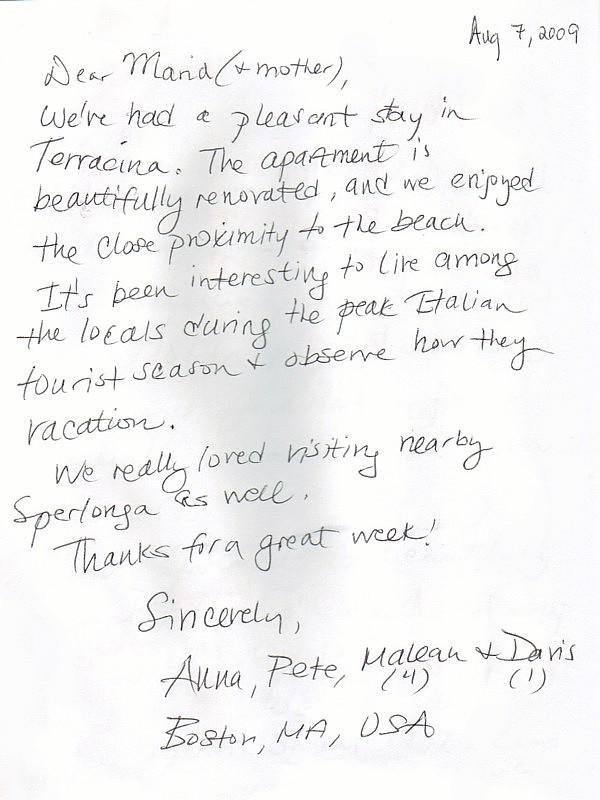 Aug 7, 2009
Dear Maria (+ mother),
We've had a pleasant stay in
Terracina. The apartment is
beautifully renovated, and we enjoyed
the close proximity to the beach.
It's been interesting to live among
the locals during the peak Italian
tourist season + observe how they
vacation.
We really loved visiting nearby
Sperlonga as well.
Thanks for a great week!
Sincerely,
Anna, Pete, & Davis
(4) (1)
Boston, MA, USA